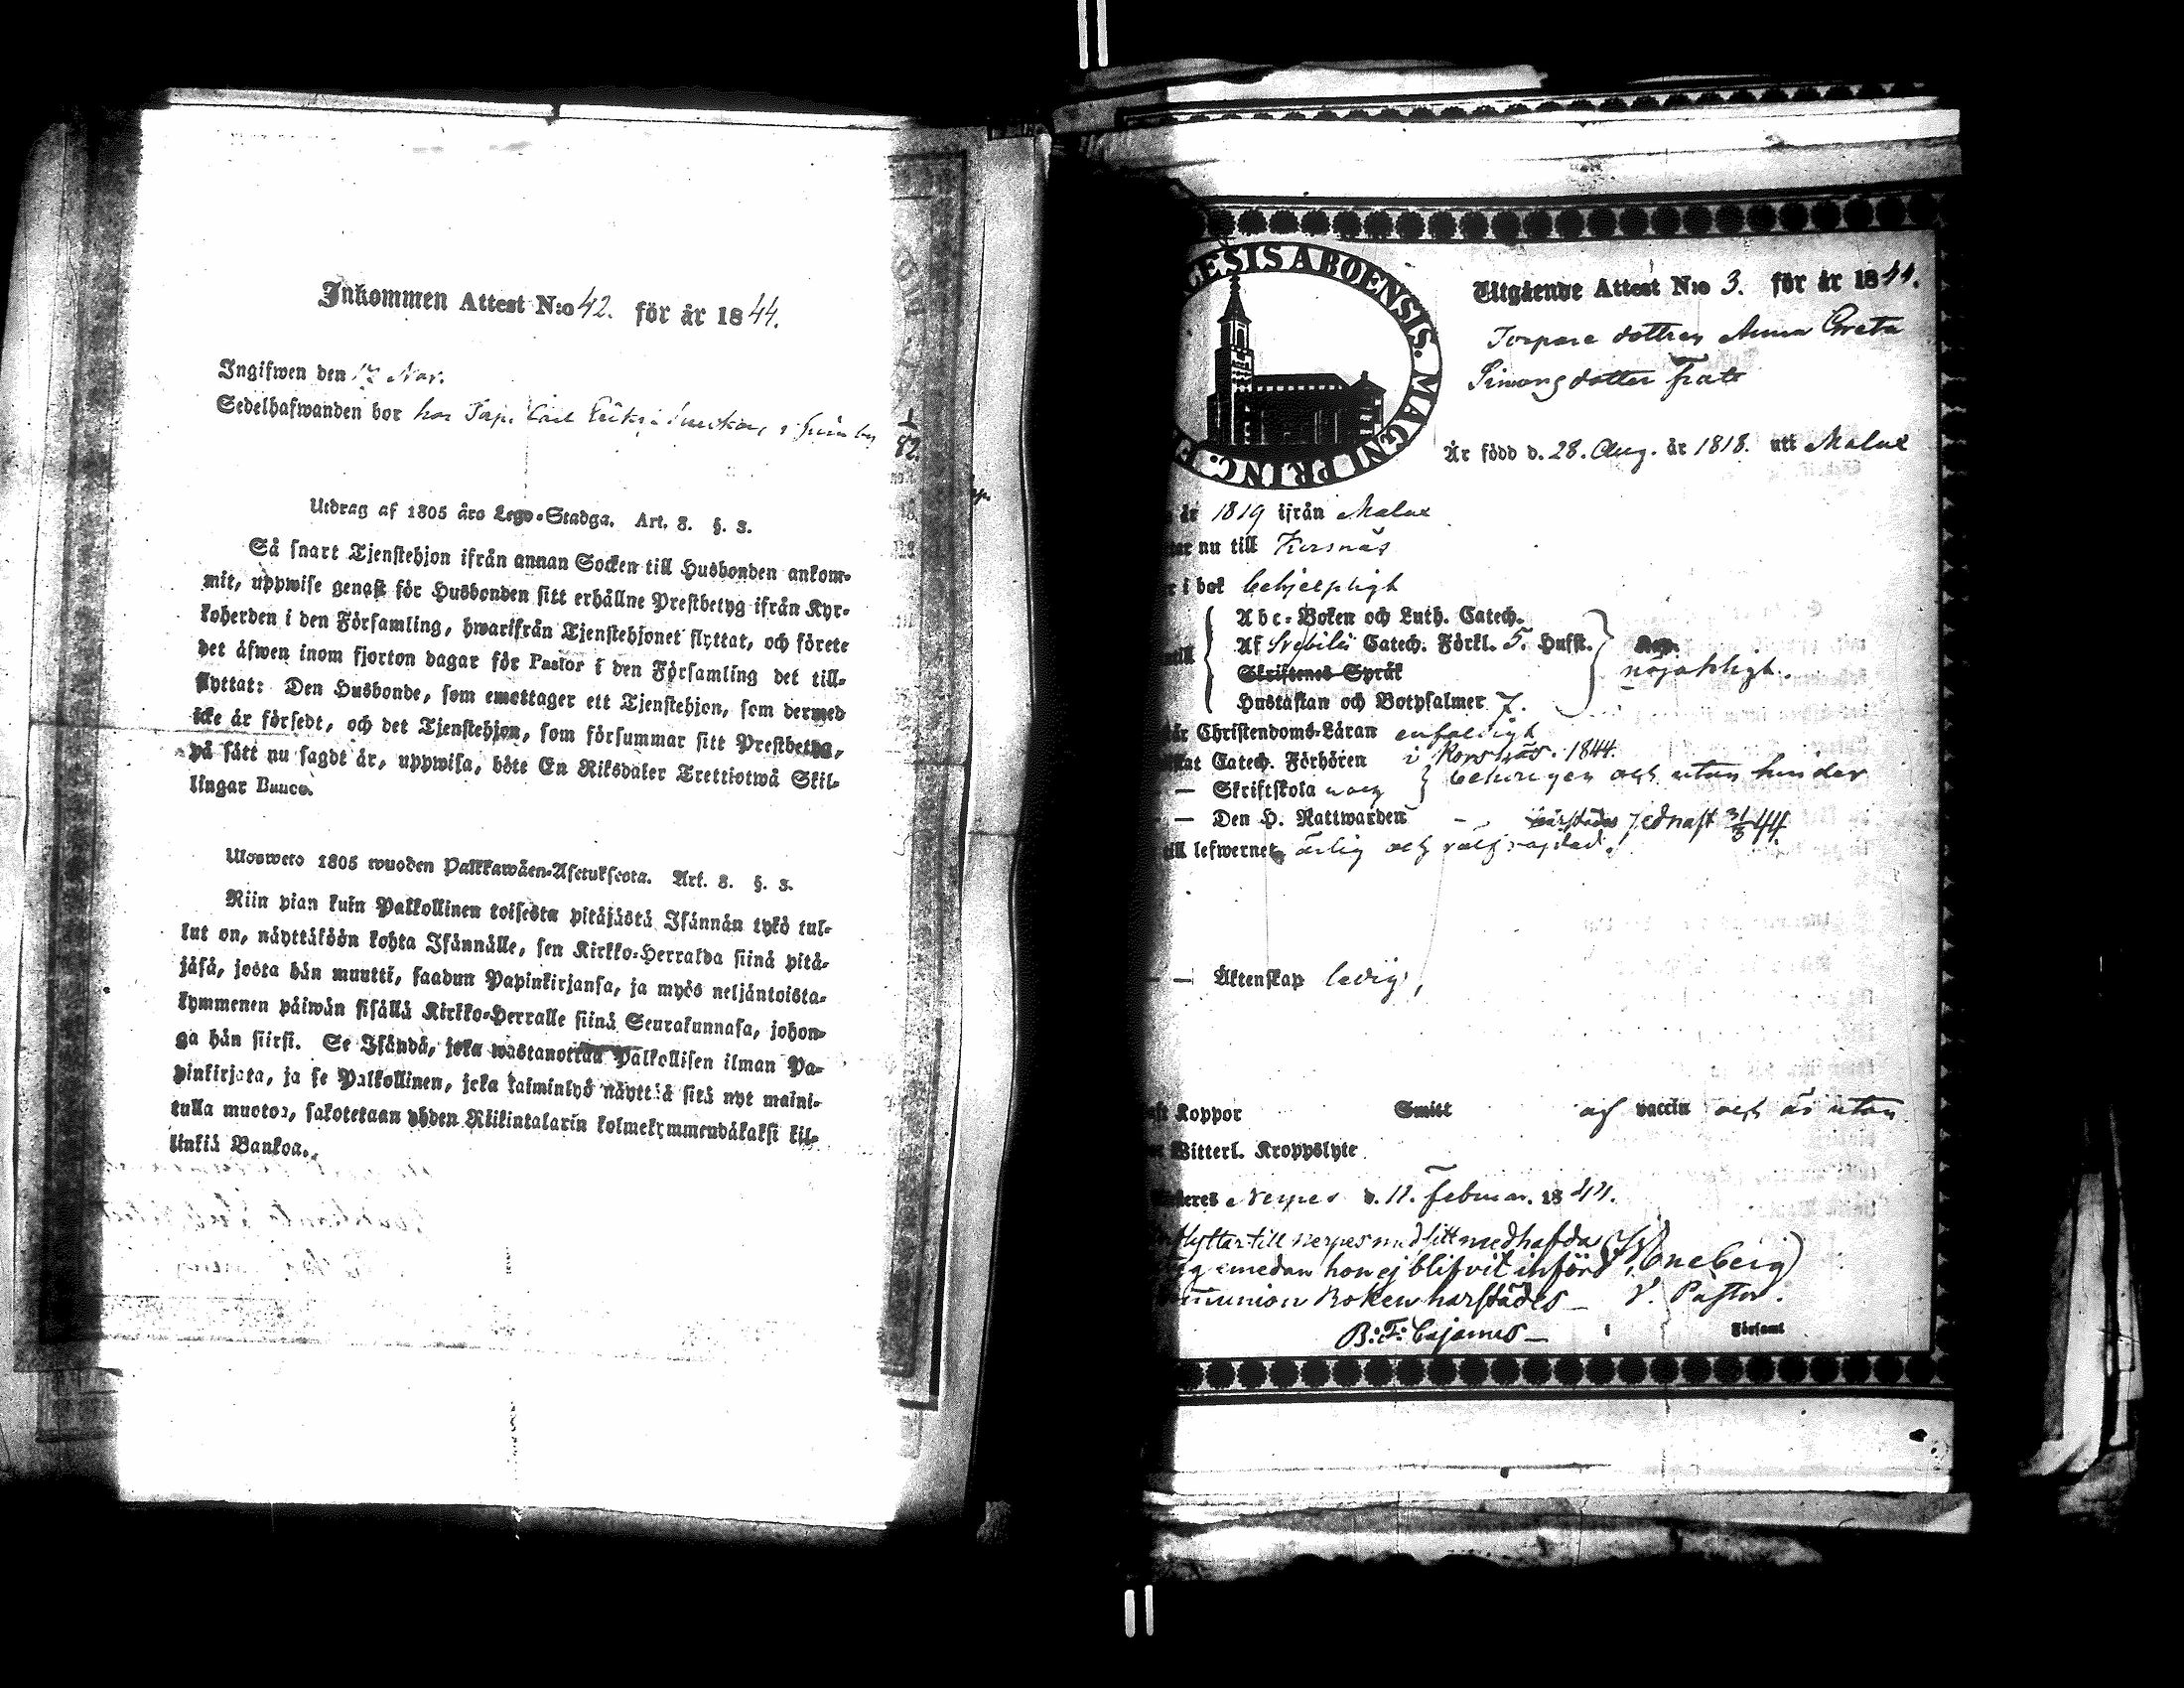 Inkommen Attest N:o 42. för år 1844.
Ingifwen den 17 Nov.
Sedelhafwanden bor hos Torp. Carl Eriks
Utdrag af 1805 års Lego-Stadga. Art. 8. §. 3.
Så snart Tjenstehjon ifrån annan Socken till Husbonden ankom-
mit, uppwise genast för Husbonden sitt erhållne Prestbetyg ifrån Kyr-
koherden i den Församling, hwarifrån Tjenstehjonet flyttat, och förete
det äfwen inom fjorton dagar för Pastor i den Församling det till-
flyttat: Den Husbonde, som emottager ett Tjenstehjon, som dermed
icke är försedt, och det Tjenstehjon, som försummar sitt Prestbetyg,
på sätt nu sagdt är, uppwisa, böte En Riksdaler Trettiotwå Skil-
lingar Banco.
Ulosweto 1805 wuoden Palkkawäen-Asetuksesta. Art. 8. §. 3.
Niin pian kuin Palkollinen toisesta pitäjästä Isännän tykö tul-
lut on, näyttäköön kohta Isännälle, sen Kirkko-Herralda siinä pitä-
jäsä, josta hän muutti, saadun Papinkirjansa, ja myös neljäntoista-
kymmenen päiwän sisällä Kirkko-Herralle siinä Seurakunnasa, johon-
ga hän siirsi. Se Isändä, joka wastanottaa Palkollisen ilman Pa-
pinkirjata, ja se Palkollinen, joka laiminlyö näyttää sitä nyt maini-
tulla muotoa, sakotetaan yhden Riikintalarin kolmekymmendäkaksi kil-
linkiä Bankoa.
GESIS ABOENSIS. MAGNI PRINC. F
Utgående Attest N:o 3. för år 1844.
Torpare dottren Anna Greta
Simonsdotter Frats
Är född d. 28. Aug. år 1818. uti Malax
år 1819 ifrån Malax
nu till Korsnäs
i bok behjelpligt
Abc-Boken och Luth. Catech.
Af Svebilii Catech. Förkl. 5. Hufst.
Skriftenes Språk
nöjaktligt.
Hustaflan och Botpsalmer 7.
Christendoms-Läran enfaldigt
Catech. Förhören i Korsnäs. 1844.
— Skriftskola och utan hinder
— Den H. Nattwarden härstädes sednast 31/3 44
till lefwernet ärlig och
— — Äktenskap ledig,
Koppor Smitt och vaccin och är utan
Witterl. Kroppslyte
Nerpes d. 12. Februar. 1844.
flyttar till Nerpes med sitt medhafda
emedan hon ej blifvit införd
Communion Boken härstädes —
V. Pastor.
B: F: Cajanus —
Församl